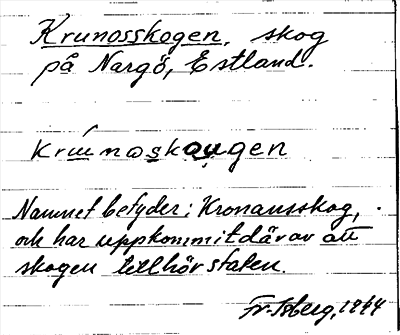 Krunosskogen, skog
på Nargö, Estland.
krunoskougen
Namnet betyder: Kronansskog,
och har uppkommit därav att
skogen tillhör staten.
Fr. Isberg, 1944